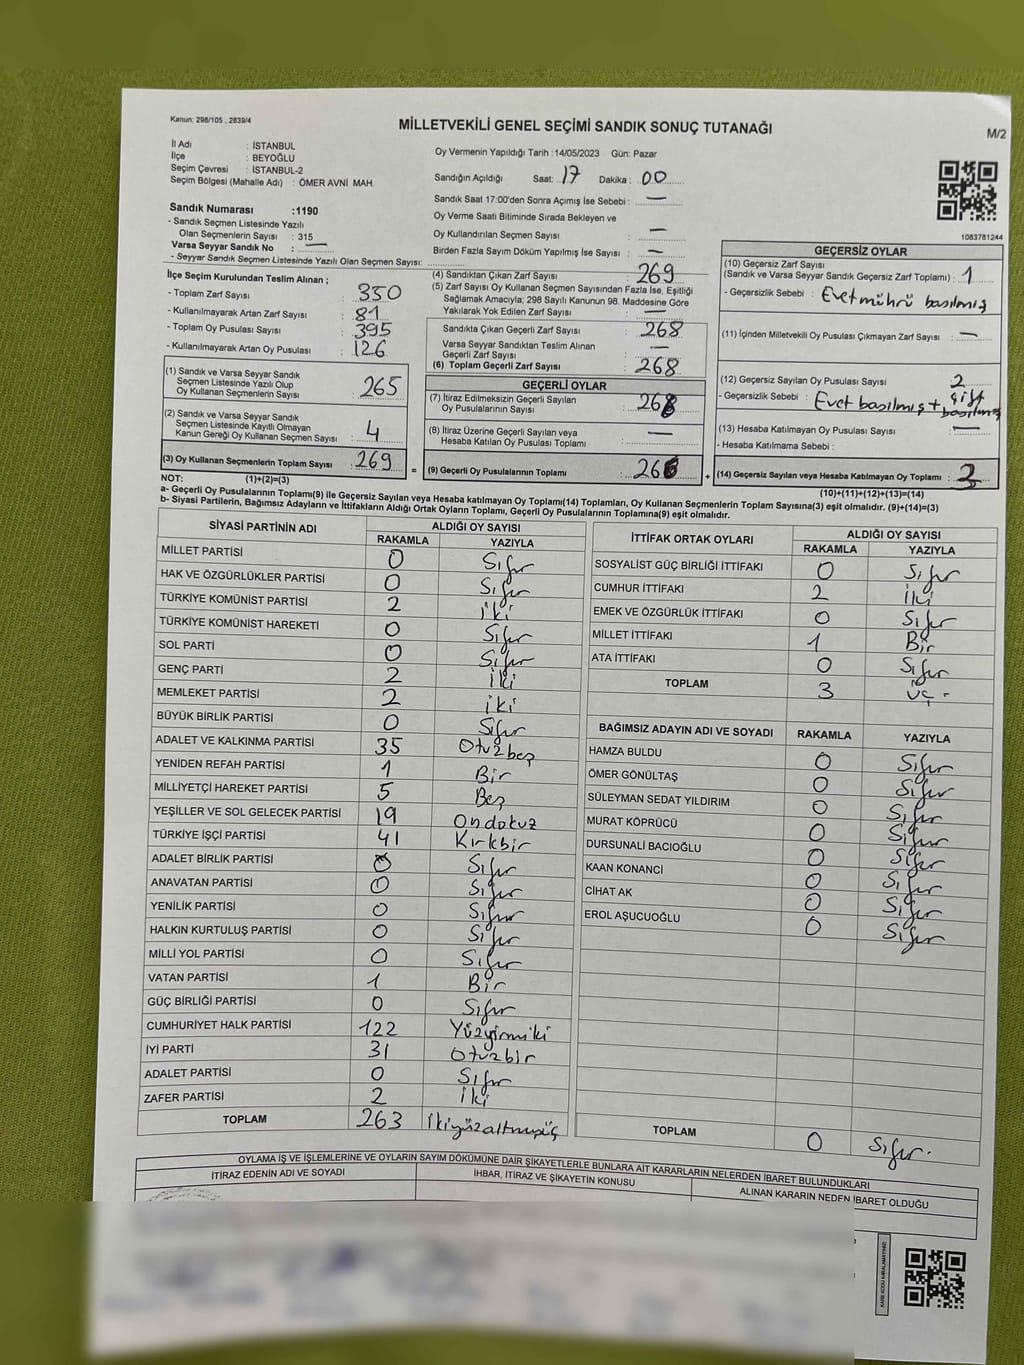 Kanun; 298/105 , 2839/4
MİLLETVEKİLİ GENEL SEÇİMİ SANDIK SONUÇ TUTANAĞI
M/2
İl Adı : İSTANBUL
İlçe : BEYOĞLU
Seçim Çevresi : İSTANBUL-2
Seçim Bölgesi (Mahalle Adı) : ÖMER AVNİ MAH.
Sandık Numarası :1190
- Sandık Seçmen Listesinde Yazılı
Olan Seçmenlerin Sayısı : 315
Varsa Seyyar Sandık No : —
- Seyyar Sandık Seçmen Listesinde Yazılı Olan Seçmen Sayısı:
Oy Vermenin Yapıldığı Tarih :14/05/2023 Gün: Pazar
Sandığın Açıldığı Saat: 17 Dakika : 00
Sandık Saat 17:00'den Sonra Açımış İse Sebebi : —
Oy Verme Saati Bitiminde Sırada Bekleyen ve
Oy Kullandırılan Seçmen Sayısı : —
Birden Fazla Sayım Döküm Yapılmış İse Sayısı : —
1083781244
İlçe Seçim Kurulundan Teslim Alınan ;
- Toplam Zarf Sayısı : 350
- Kullanılmayarak Artan Zarf Sayısı : 81
- Toplam Oy Pusulası Sayısı : 395
- Kullanılmayarak Artan Oy Pusulası : 126
(1) Sandık ve Varsa Seyyar Sandık
Seçmen Listesinde Yazılı Olup
Oy Kullanan Seçmenlerin Sayısı : 265
(2) Sandık ve Varsa Seyyar Sandık
Seçmen Listesinde Kayıtlı Olmayan
Kanun Gereği Oy Kullanan Seçmen Sayısı : 4
(3) Oy Kullanan Seçmenlerin Toplam Sayısı : 269
(4) Sandıktan Çıkan Zarf Sayısı : 269
(5) Zarf Sayısı Oy Kullanan Seçmen Sayısından Fazla İse, Eşitliği
Sağlamak Amacıyla; 298 Sayılı Kanunun 98. Maddesine Göre
Yakılarak Yok Edilen Zarf Sayısı : —
Sandıkta Çıkan Geçerli Zarf Sayısı : 268
Varsa Seyyar Sandıktan Teslim Alınan
Geçerli Zarf Sayısı : —
(6) Toplam Geçerli Zarf Sayısı : 268
GEÇERLİ OYLAR
(7) İtiraz Edilmeksizin Geçerli Sayılan
Oy Pusulalarının Sayısı :
(8) İtiraz Üzerine Geçerli Sayılan veya
Hesaba Katılan Oy Pusulası Toplamı : —
= (9) Geçerli Oy Pusulalarının Toplamı : 266
GEÇERSİZ OYLAR
(10) Geçersiz Zarf Sayısı
(Sandık ve Varsa Seyyar Sandık Geçersiz Zarf Toplamı) : 1
- Geçersizlik Sebebi : Evet mührü basılmış
(11) İçinden Milletvekili Oy Pusulası Çıkmayan Zarf Sayısı : —
(12) Geçersiz Sayılan Oy Pusulası Sayısı : 2
- Geçersizlik Sebebi : Evet basılmış + çift basılmış
(13) Hesaba Katılmayan Oy Pusulası Sayısı : —
- Hesaba Katılmama Sebebi :
+ (14) Geçersiz Sayılan veya Hesaba Katılmayan Oy Toplamı : 3
NOT: (1)+(2)=(3)
(10)+(11)+(12)+(13)=(14)
a- Geçerli Oy Pusulalarının Toplamı(9) ile Geçersiz Sayılan veya Hesaba katılmayan Oy Toplamı(14) Toplamları, Oy Kullanan Seçmenlerin Toplam Sayısına(3) eşit olmalıdır. (9)+(14)=(3)
b- Siyasi Partilerin, Bağımsız Adayların ve İttifakların Aldığı Ortak Oyların Toplamı, Geçerli Oy Pusulalarının Toplamına(9) eşit olmalıdır.
SİYASİ PARTİNİN ADI ALDIĞI OY SAYISI
RAKAMLA YAZIYLA
MİLLET PARTİSİ 0 Sıfır
HAK VE ÖZGÜRLÜKLER PARTİSİ 0 Sıfır
TÜRKİYE KOMÜNİST PARTİSİ 2 iki
TÜRKİYE KOMÜNİST HAREKETİ 0 Sıfır
SOL PARTİ 0 Sıfır
GENÇ PARTİ 2 iki
MEMLEKET PARTİSİ 2 iki
BÜYÜK BİRLİK PARTİSİ 0 Sıfır
ADALET VE KALKINMA PARTİSİ 35 Otuzbeş
YENİDEN REFAH PARTİSİ 1 Bir
MİLLİYETÇİ HAREKET PARTİSİ 5 Beş
YEŞİLLER VE SOL GELECEK PARTİSİ 19 Ondokuz
TÜRKİYE İŞÇİ PARTİSİ 41 Kırkbir
ADALET BİRLİK PARTİSİ 0 Sıfır
ANAVATAN PARTİSİ 0 Sıfır
YENİLİK PARTİSİ 0 Sıfır
HALKIN KURTULUŞ PARTİSİ 0 Sıfır
MİLLİ YOL PARTİSİ 0 Sıfır
VATAN PARTİSİ 1 Bir
GÜÇ BİRLİĞİ PARTİSİ 0 Sıfır
CUMHURİYET HALK PARTİSİ 122 Yüzyirmiiki
İYİ PARTİ 31 Otuzbir
ADALET PARTİSİ 0 Sıfır
ZAFER PARTİSİ 2 iki
TOPLAM 263 ikiyüzaltmışüç
İTTİFAK ORTAK OYLARI ALDIĞI OY SAYISI
RAKAMLA YAZIYLA
SOSYALİST GÜÇ BİRLİĞİ İTTİFAKI 0 Sıfır
CUMHUR İTTİFAKI 2 iki
EMEK VE ÖZGÜRLÜK İTTİFAKI 0 Sıfır
MİLLET İTTİFAKI 1 Bir
ATA İTTİFAKI 0 Sıfır
TOPLAM 3 üç -
BAĞIMSIZ ADAYIN ADI VE SOYADI RAKAMLA YAZIYLA
HAMZA BULDU 0 Sıfır
ÖMER GÖNÜLTAŞ 0 Sıfır
SÜLEYMAN SEDAT YILDIRIM 0 Sıfır
MURAT KÖPRÜCÜ 0 Sıfır
DURSUNALİ BACIOĞLU 0 Sıfır
KAAN KONANCİ 0 Sıfır
CİHAT AK 0 Sıfır
EROL AŞUCUOĞLU 0 Sıfır
TOPLAM 0 Sıfır.
OYLAMA İŞ VE İŞLEMLERİNE VE OYLARIN SAYIM DÖKÜMÜNE DAİR ŞİKAYETLERLE BUNLARA AİT KARARLARIN NELERDEN İBARET BULUNDUKLARI
İTİRAZ EDENİN ADI VE SOYADI
İHBAR, İTİRAZ VE ŞİKAYETİN KONUSU
ALINAN KARARIN NEDEN İBARET OLDUĞU